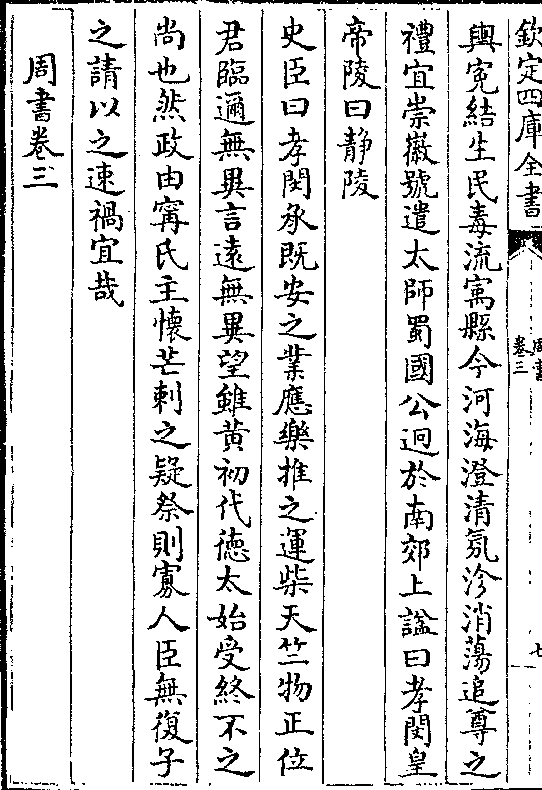 欽定四庫全書
周書
卷三
七
輿寃結生民毒流㝢縣今河海澄清氛沴消蕩追尊之
禮宜崇徽號遣太師蜀國公迥於南郊上諡曰孝閔皇
帝陵曰静陵
史臣曰孝閔承既安之業應樂推之運柴天竺物正位
君臨邇無異言遠無異望雖黄初代德太始受終不之
尚也然政由寗氏主懷芒刺之疑祭則寡人臣無復子
之請以之速禍宜哉
周書卷三